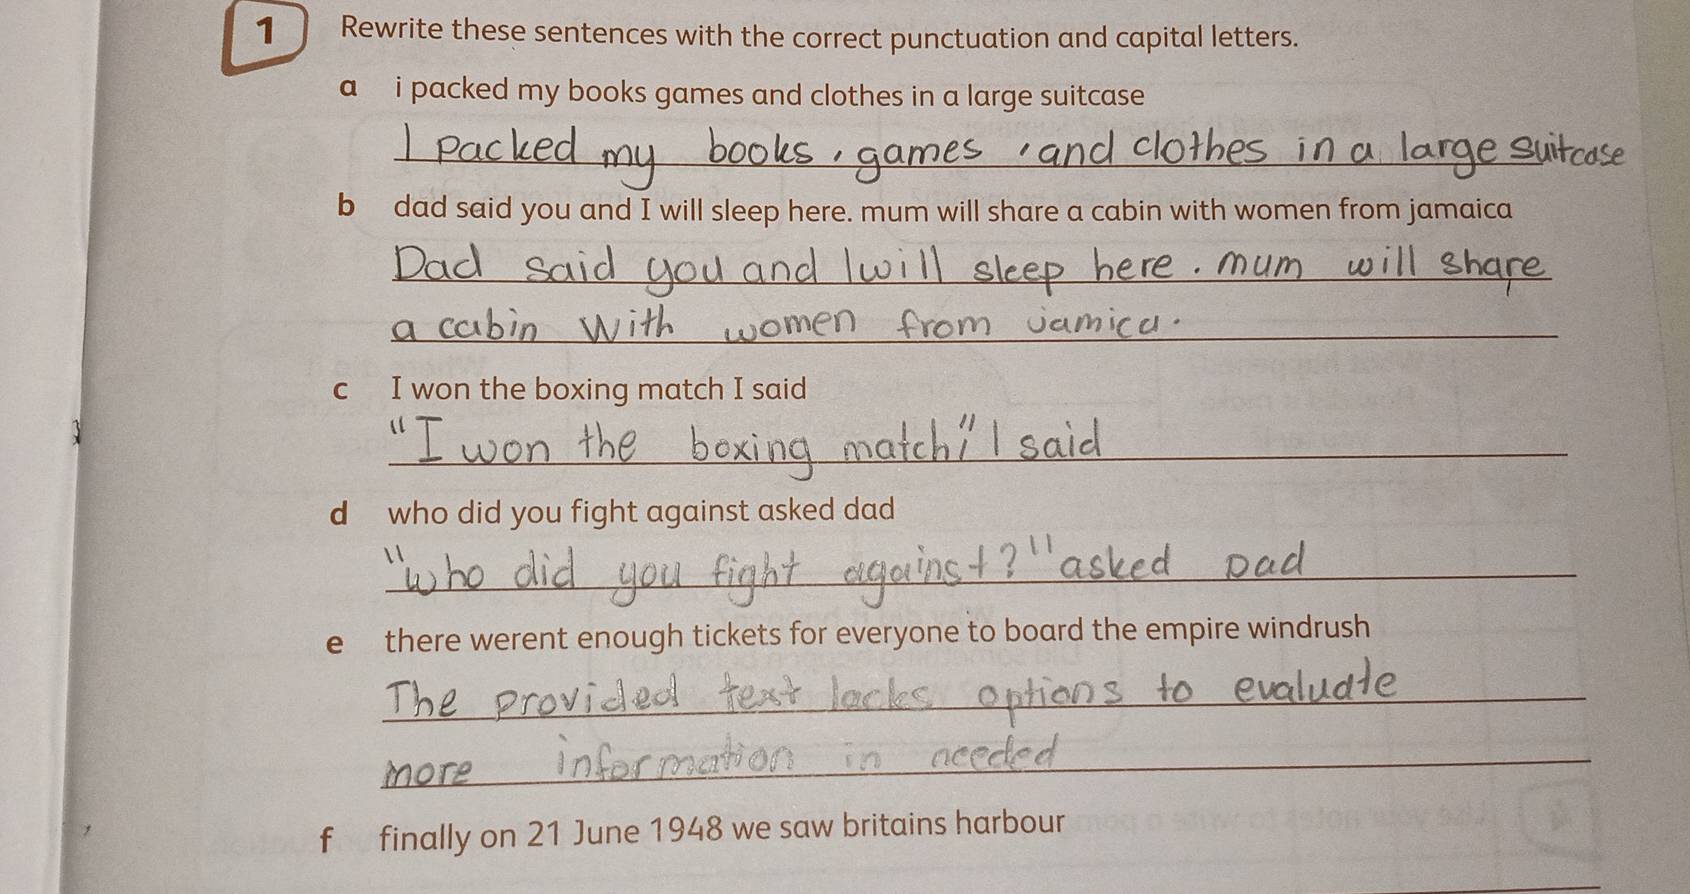 1 Rewrite these sentences with the correct punctuation and capital letters.
a i packed my books games and clothes in a large suitcase
I packed my books, games, and clothes in a large suitcase
b dad said you and I will sleep here. mum will share a cabin with women from jamaica
Dad said you and I will sleep here. mum will share
a cabin With women from jamica.
c I won the boxing match I said
"I won the boxing match," I said
d who did you fight against asked dad
"who did you fight against?" asked Dad
e there werent enough tickets for everyone to board the empire windrush
The provided text lacks options to evaluate
more information in needed
f finally on 21 June 1948 we saw britains harbour